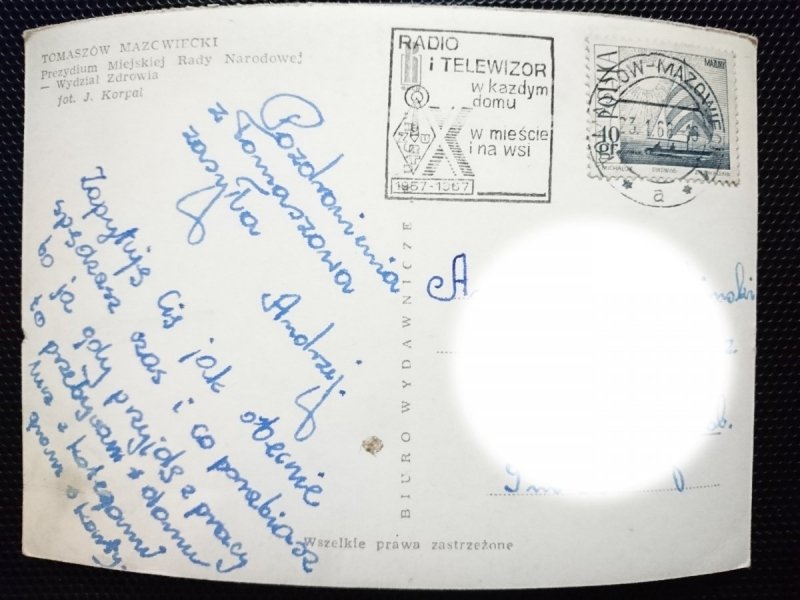 TOMASZÓW MAZOWIECKI
Prezydium Miejskiej Rady Narodowej
— Wydział Zdrowia
fot. J. Korpal
Pozdrowienia
z Tomaszowa
zasyła
Andrzej.
Zapytuję Cię jak obecnie
spędzasz czas i co porabiasz
bo ja gdy przyjdę z pracy
to przebywam w domu
z kolegami
gram w karty.
BIURO WYDAWNICZE
Wszelkie prawa zastrzeżone
RADIO
i TELEWIZOR
w każdym
domu
w mieście
i na wsi
X
1957-1967
POLSKA
MAZURY
10
gr
ÓW-MAZOWIEC
a